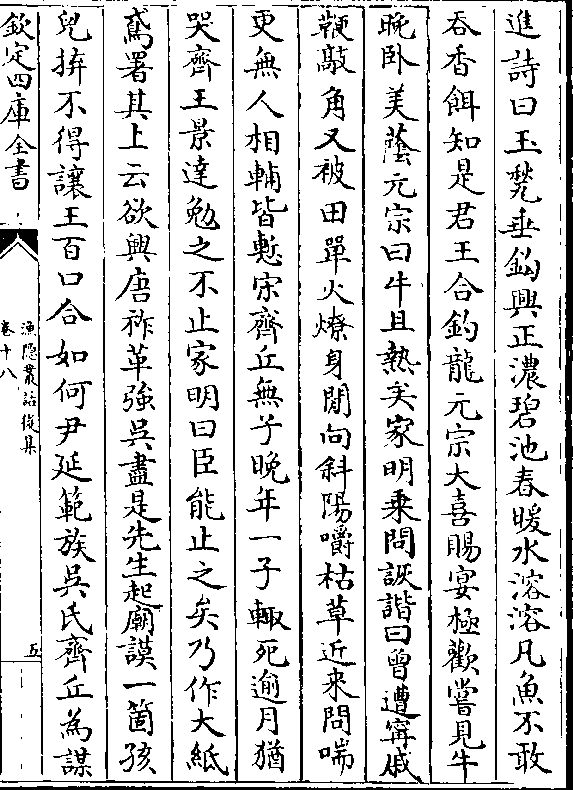 進詩曰玉甃垂鈎興正濃碧池春暖水溶溶凡魚不敢
吞香餌知是君王合釣龍元宗大喜賜宴極歡嘗見牛
晚卧美蔭元宗曰牛且熱矣家明乗問詼諧曰曾遭寗戚
鞭敲角又被田單火燎身閒向斜陽嚼枯草近来問喘
更無人相輔皆慙宋齊丘無子晚年一子輙死逾月猶
哭齊王景達勉之不止家明曰臣能止之矣乃作大紙
鳶署其上云欲興唐祚革強吳盡是先生起廟謨一箇孩
兒拚不得讓王百口合如何尹延範族吳氏齊丘為謀
欽定四庫全書
漁隠叢話後集
卷十八
五